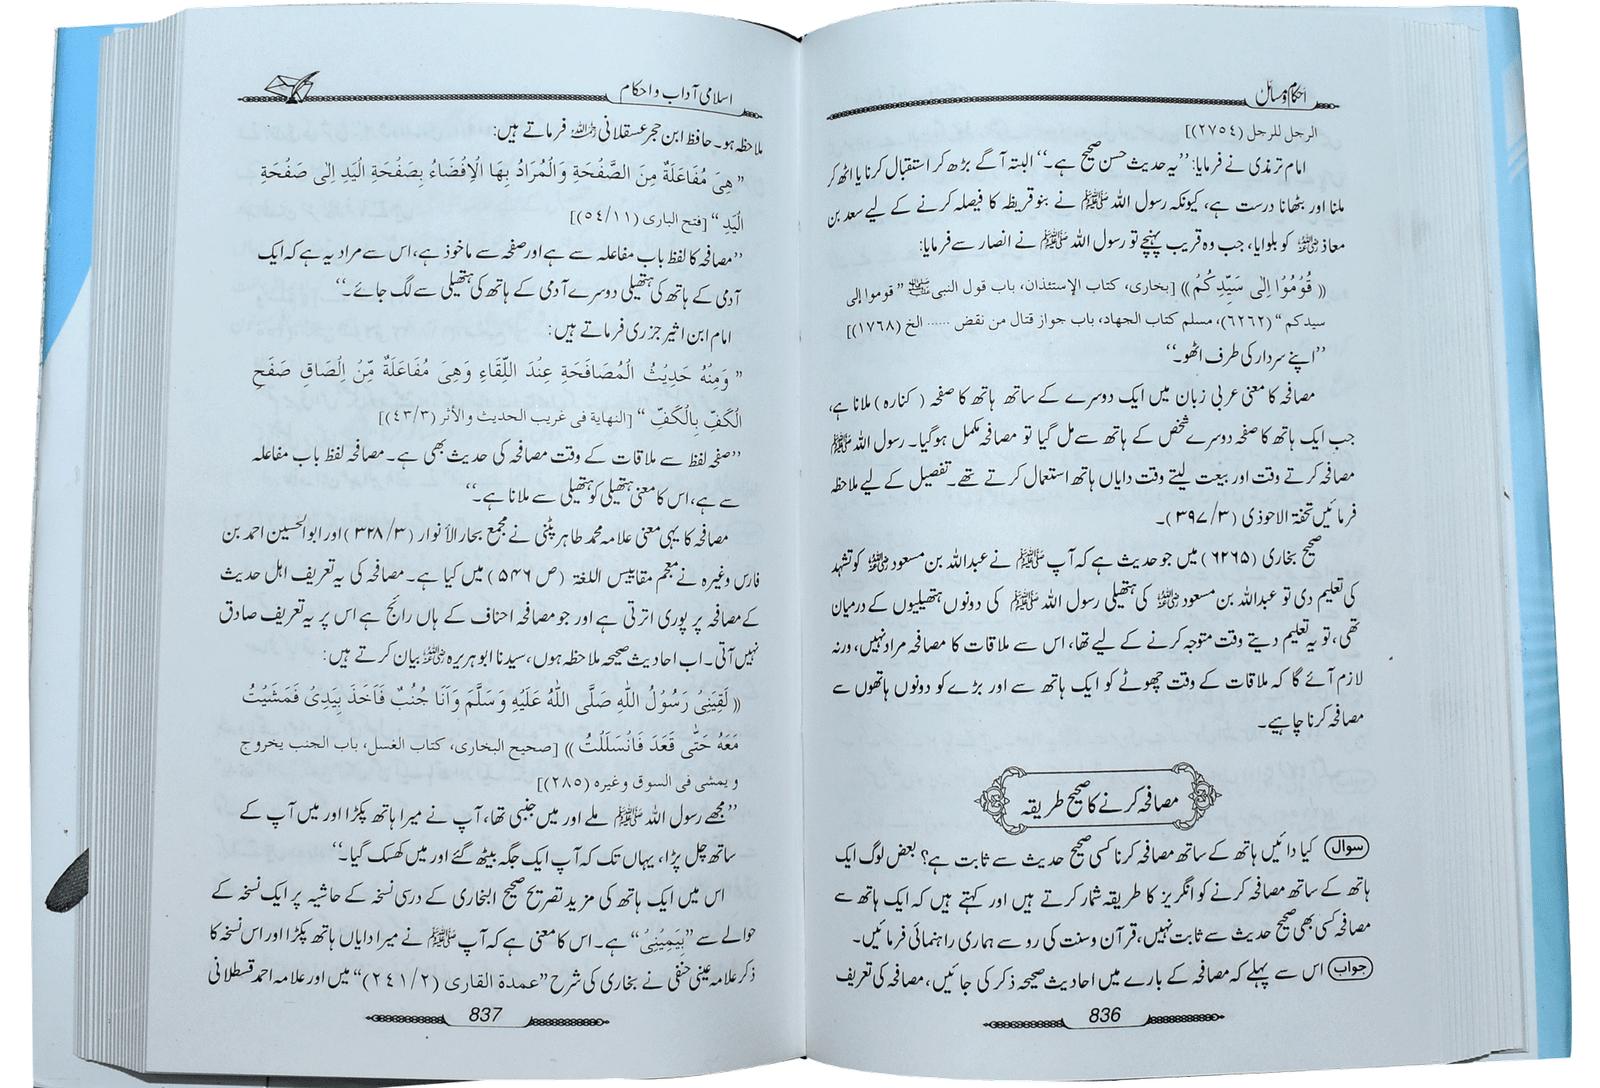 احکام و مسائل
الرجل للرجل (٢٧٥٤)]
امام ترمذی نے فرمایا: ’’یہ حدیث حسن صحیح ہے۔‘‘ البتہ آگے بڑھ کر استقبال کرنا یا اٹھ کر
ملنا اور بٹھانا درست ہے، کیونکہ رسول اللہ ﷺ نے بنو قریظہ کا فیصلہ کرنے کے لیے سعد بن
معاذ رضی اللہ عنہ کو بلوایا، جب وہ قریب پہنچے تو رسول اللہ ﷺ نے انصار سے فرمایا:
(( قُوْمُوْا اِلٰی سَیِّدِکُمْ )) [بخاری، کتاب الإستئذان، باب قول النبی ﷺ ’’ قوموا إلی
سیدکم ‘‘ (٦٢٦٢)، مسلم کتاب الجھاد، باب جواز قتال من نقض ...... الخ (١٧٦٨)]
’’اپنے سردار کی طرف اٹھو۔‘‘
مصافحہ کا معنی عربی زبان میں ایک دوسرے کے ساتھ ہاتھ کا صفحہ ( کنارہ ) ملانا ہے،
جب ایک ہاتھ کا صفحہ دوسرے شخص کے ہاتھ سے مل گیا تو مصافحہ مکمل ہوگیا۔ رسول اللہ ﷺ
مصافحہ کرتے وقت اور بیعت لیتے وقت دایاں ہاتھ استعمال کرتے تھے۔ تفصیل کے لیے ملاحظہ
فرمائیں تحفۃ الاحوذی (۳/ ۳۹۷)۔
صحیح بخاری (۶۲۶۵) میں جو حدیث ہے کہ آپ ﷺ نے عبداللہ بن مسعود رضی اللہ عنہ کو تشہد
کی تعلیم دی تو عبداللہ بن مسعود رضی اللہ عنہ کی ہتھیلی رسول اللہ ﷺ کی دونوں ہتھیلیوں کے درمیان
تھی، تو یہ تعلیم دیتے وقت متوجہ کرنے کے لیے تھا، اس سے ملاقات کا مصافحہ مراد نہیں، ورنہ
لازم آئے گا کہ ملاقات کے وقت چھوٹے کو ایک ہاتھ سے اور بڑے کو دونوں ہاتھوں سے
مصافحہ کرنا چاہیے۔
مصافحہ کرنے کا صحیح طریقہ
سوال کیا دائیں ہاتھ کے ساتھ مصافحہ کرنا کسی صحیح حدیث سے ثابت ہے؟ بعض لوگ ایک
ہاتھ کے ساتھ مصافحہ کرنے کو انگریز کا طریقہ شمار کرتے ہیں اور کہتے ہیں کہ ایک ہاتھ سے
مصافحہ کسی بھی صحیح حدیث سے ثابت نہیں، قرآن وسنت کی رو سے ہماری راہنمائی فرمائیں۔
جواب اس سے پہلے کہ مصافحہ کے بارے میں احادیث صحیحہ ذکر کی جائیں، مصافحہ کی تعریف
836
اسلامی آداب و احکام
ملاحظہ ہو۔ حافظ ابن حجر عسقلانی رحمہ اللہ فرماتے ہیں:
’’ ھِیَ مُفَاعَلَۃٌ مِنَ الصَّفْحَۃِ وَالْمُرَادُ بِھَا الْاِفْضَاءُ بِصَفْحَۃِ الْیَدِ اِلٰی صَفْحَۃِ
الْیَدِ ‘‘ [فتح الباری (١١/ ٥٤)]
’’مصافحہ کا لفظ باب مفاعلہ سے ہے اور صفحہ سے ماخوذ ہے، اس سے مراد یہ ہے کہ ایک
آدمی کے ہاتھ کی ہتھیلی دوسرے آدمی کے ہاتھ کی ہتھیلی سے لگ جائے۔‘‘
امام ابن اثیر جزری فرماتے ہیں:
’’ وَمِنْہُ حَدِیْثُ الْمُصَافَحَۃِ عِنْدَ اللِّقَاءِ وَھِیَ مُفَاعَلَۃٌ مِّنْ اِلْصَاقِ صَفْحِ
الْکَفِّ بِالْکَفِّ ‘‘ [النھایۃ فی غریب الحدیث والأثر (٣/ ٤٣)]
’’صفحہ لفظ سے ملاقات کے وقت مصافحہ کی حدیث بھی ہے۔ مصافحہ لفظ باب مفاعلہ
سے ہے، اس کا معنی ہتھیلی کو ہتھیلی سے ملانا ہے۔‘‘
مصافحہ کا یہی معنی علامہ محمد طاہر پٹنی نے مجمع بحار الأنوار (۳/ ۳۲۸) اور ابو الحسین احمد بن
فارس وغیرہ نے معجم مقاییس اللغۃ (ص ۵۴۶) میں کیا ہے۔ مصافحہ کی یہ تعریف اہل حدیث
کے مصافحہ پر پوری اترتی ہے اور جو مصافحہ احناف کے ہاں رائج ہے اس پر یہ تعریف صادق
نہیں آتی۔ اب احادیث صحیحہ ملاحظہ ہوں، سیدنا ابو ہریرہ رضی اللہ عنہ بیان کرتے ہیں:
(( لَقِیَنِیْ رَسُوْلُ اللّٰہِ صَلَّی اللّٰہُ عَلَیْہِ وَسَلَّمَ وَاَنَا جُنُبٌ فَاَخَذَ بِیَدِیْ فَمَشَیْتُ
مَعَہُ حَتّٰی قَعَدَ فَانْسَلَلْتُ )) [صحیح البخاری، کتاب الغسل، باب الجنب یخروج
و یمشی فی السوق وغیرہ (٢٨٥)]
’’مجھے رسول اللہ ﷺ ملے اور میں جنبی تھا، آپ نے میرا ہاتھ پکڑا اور میں آپ کے
ساتھ چل پڑا، یہاں تک کہ آپ ایک جگہ بیٹھ گئے اور میں کھسک گیا۔‘‘
اس میں ایک ہاتھ کی مزید تصریح صحیح البخاری کے درسی نسخہ کے حاشیہ پر ایک نسخہ کے
حوالے سے ’’بِیَمِیْنِیْ‘‘ ہے۔ اس کا معنی ہے کہ آپ ﷺ نے میرا دایاں ہاتھ پکڑا اور اس نسخہ کا
ذکر علامہ عینی حنفی نے بخاری کی شرح ’’عمدۃ القاری (٢/ ٢٤١)‘‘ میں اور علامہ احمد قسطلانی
837